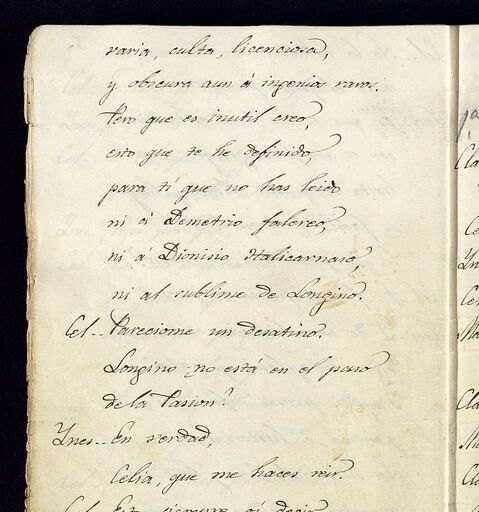 varia, culta, licenciosa,
y obscura aun á ingenios raros.
Pero que es inutil creo,
esto que te he definido,
para tí que no has leido
ni á Demetrio falereo,
ni á Dionisio Italicarnaso,
ni al sublime de Longino.
Cel.. Pareciome un desatino.
Longino no está en el paso
de la Passon?
Ynes.. En verdad,
Celia, que me haces reir.
Cel